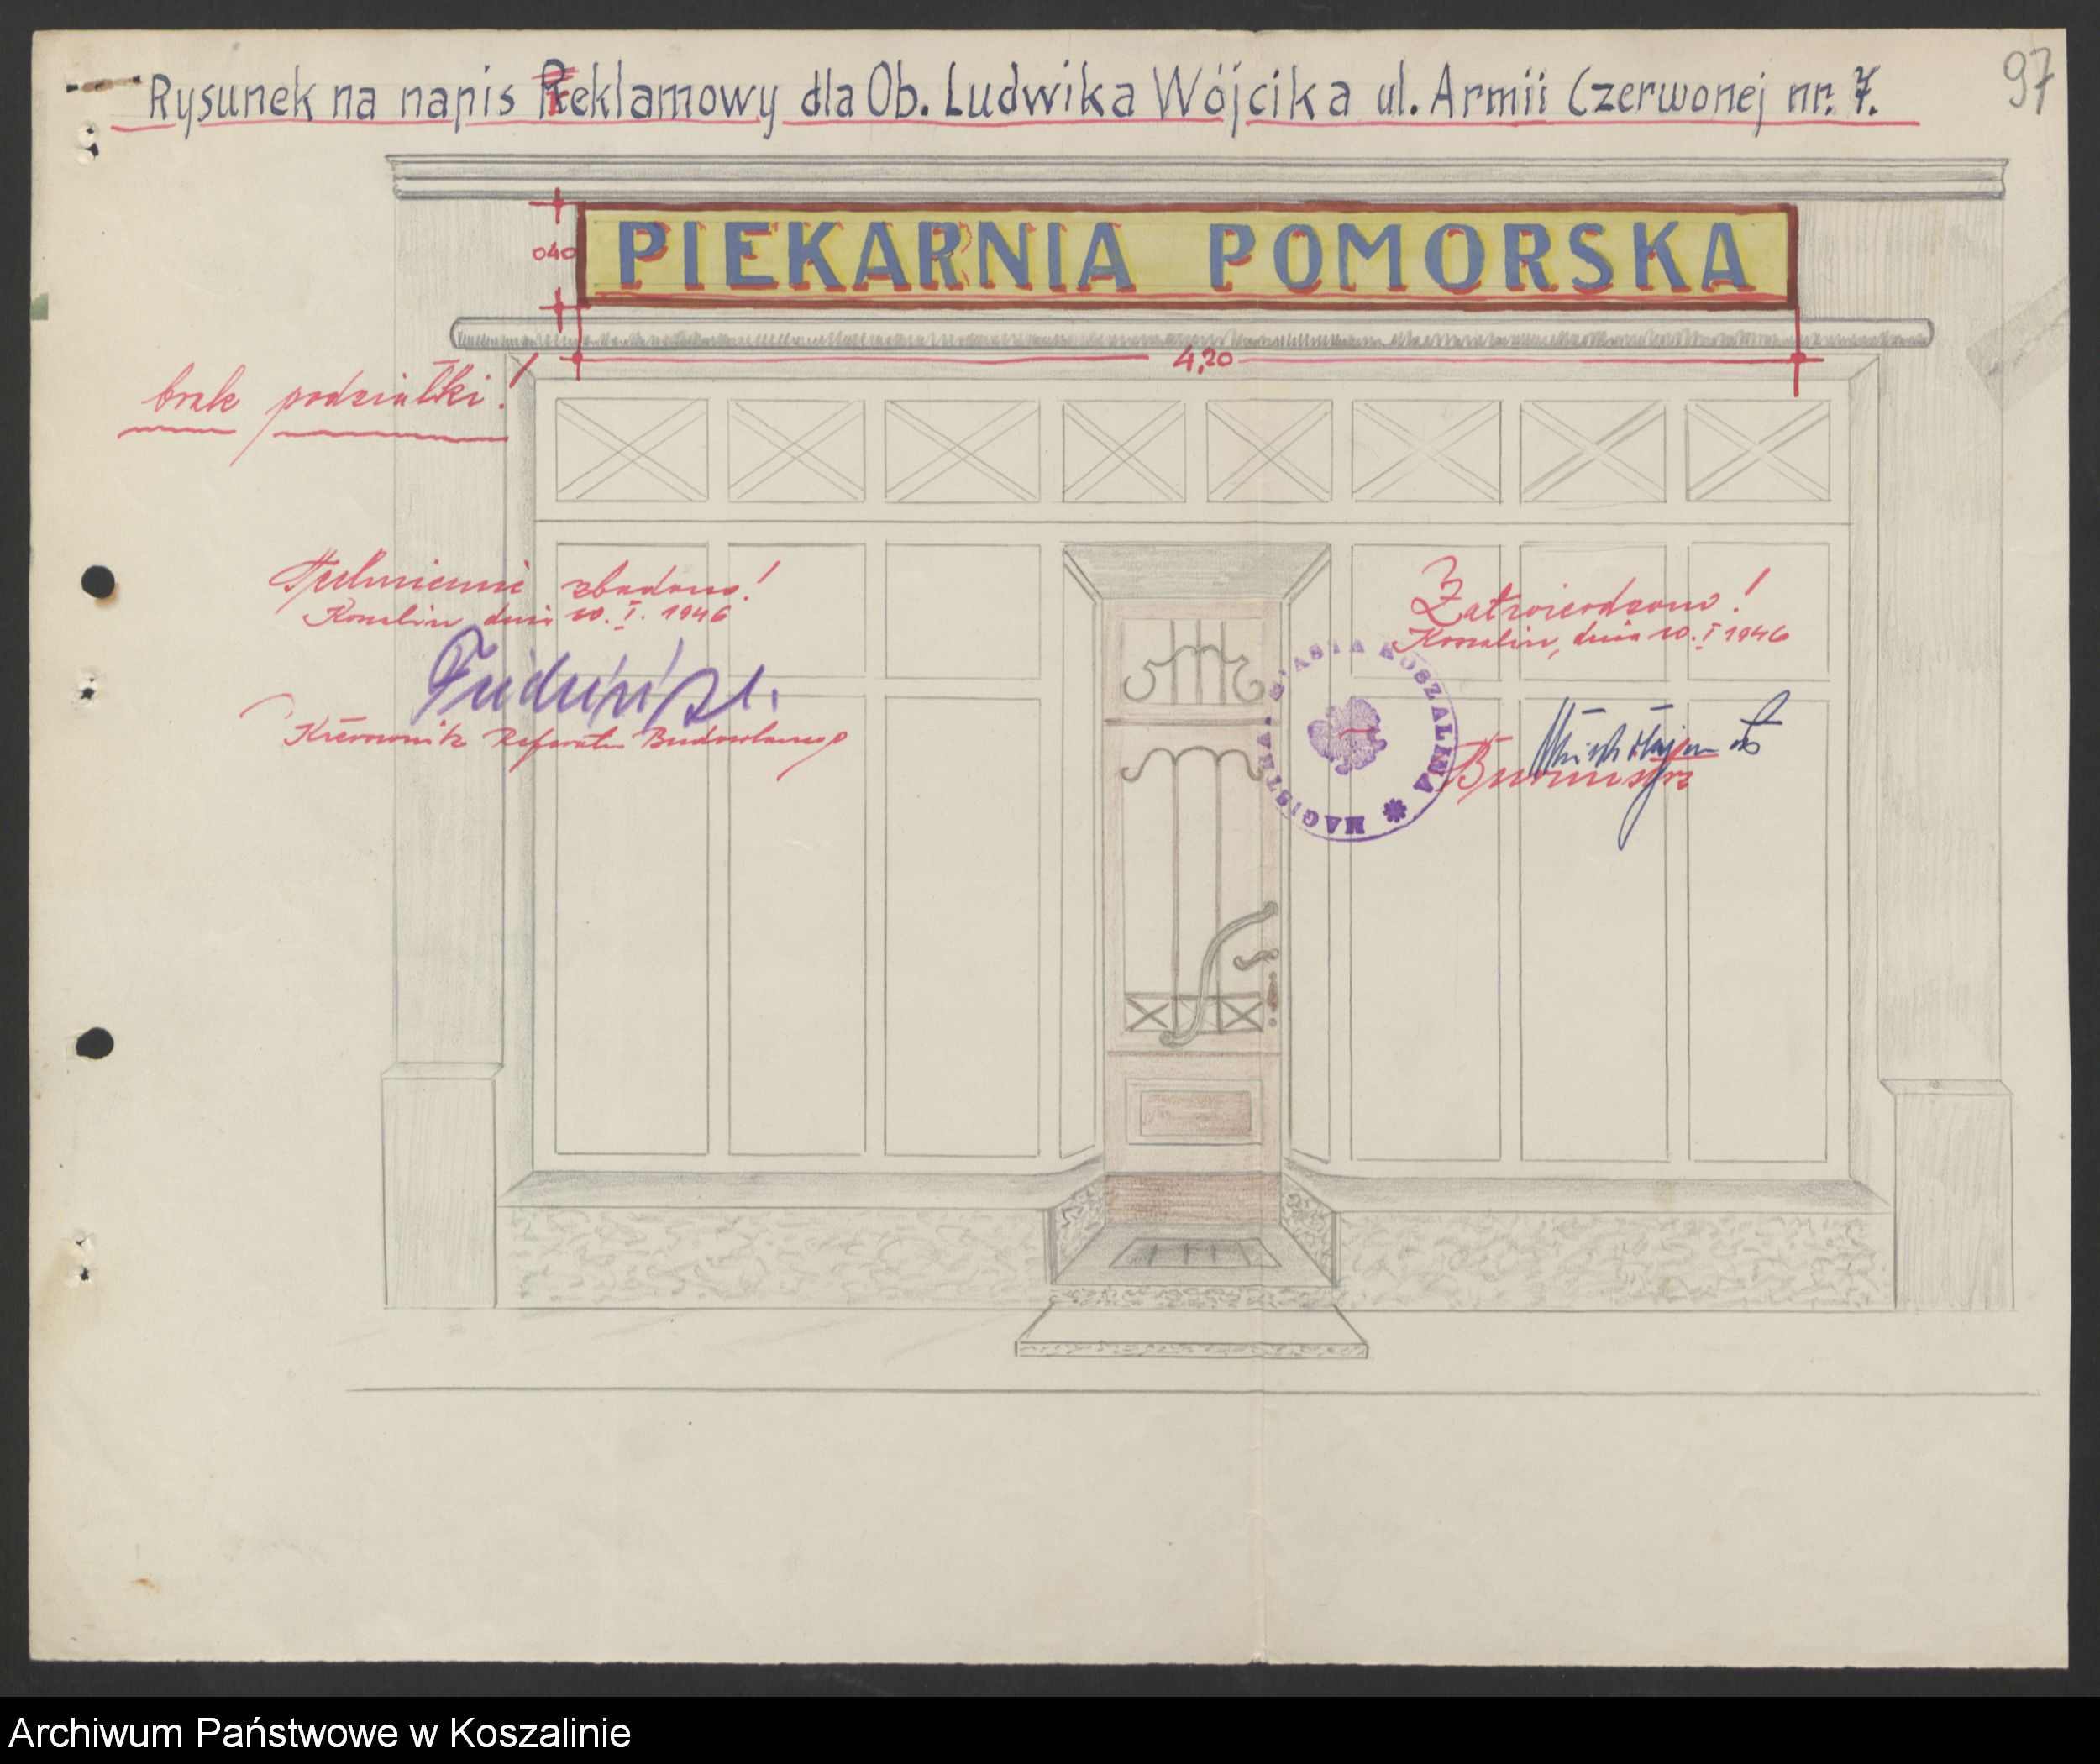 97
Rysunek na napis Reklamowy dla Ob. Ludwika Wójcika ul. Armii Czerwonej nr. 7.
PIEKARNIA POMORSKA
040
4,20
brak podziałki!
Technicznie zbadano!
Koszalin dnia 10. I. 1946
Kierownik Referatu Budowlanego
Zatwierdzono!
Koszalin, dnia 10. I 1946
MAGISTRAT MIASTA KOSZALINA
Burmistrz
Archiwum Państwowe w Koszalinie